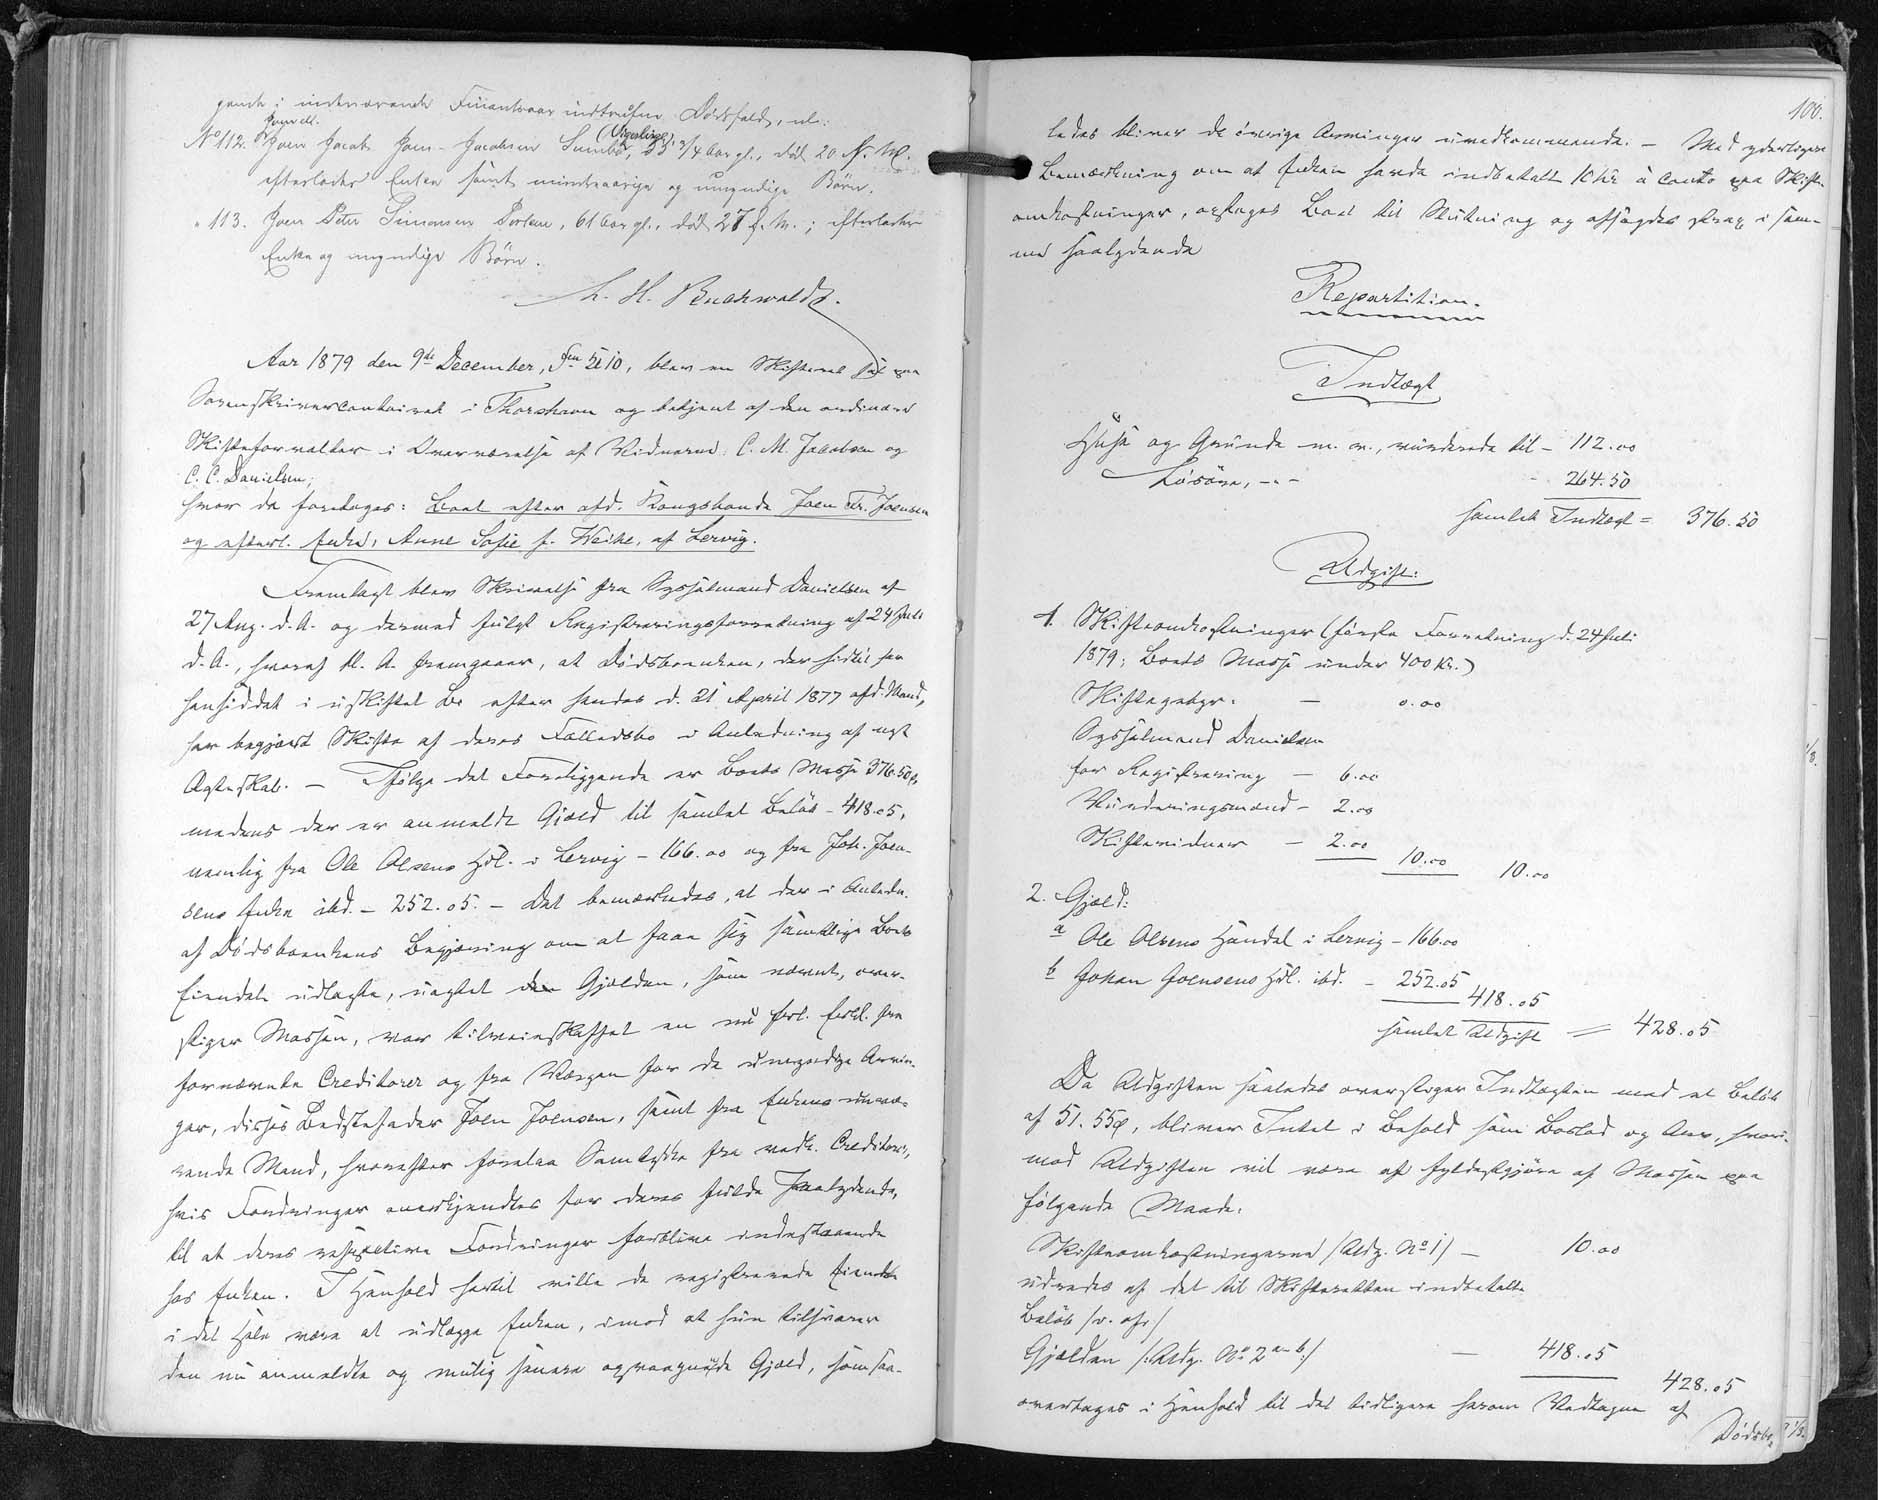 gaaende i indeværende Finantsaar indtrufne Dødsfald, nl:
No 112. Joen Jacob Joen-Jacobsen Sumbø, (Vigerlije) 53 3/4 Aar gl., død 20 f. M.
efterlader Enke samt mindreaarige og umyndige Børn.
" 113. Joen Peter Simonsen Porkere, 61 Aar gl., død 27 f. M.; efterlader
Enke og umyndige Børn.
C. H. Buchwaldt.
Aar 1879 den 9de December, Fm. Kl 10, blev en Skifteret sat paa
Sorenskrivercontoiret i Thorshavn og betjent af den ordinære
Skifteforvalter i Overværelse af Vidnerne: C. M. Jacobsen og
C. C. Danielsen,
hvor da foretoges: Boet efter afd. Kongsbonde Joen Fr. Joensen
og efterl. Enke, Anne Sofie f. Weihe, af Lervig.
Fremlagt blev Skrivelse fra Sysselmand Danielsen af
27 Aug. d. A. og dermed fulgt Registreringsforretning af 24 Juli
d. A., hvoraf bl. A. fremgaaer, at Dødsboenken, der hidtil har
hensiddet i uskiftet Bo efter hendes d. 21 April 1877 afd. Mand,
har begjært Skifte af deres Fælledsbo i Anledning af nyt
Ægteskab. — Ifølge det Foreliggende er Boets Masse 376.50,
medens der er anmeldt Gjæld til samlet Beløb - 418.05,
nemlig fra Ole Olsens Hdl. i Lervig - 166.00 og fra Joh. Joen-
sens Enke ibd. - 252.05. - Det bemærkedes, at der i Anledn.
af Dødsboenkens Begjæring om at faae sig samtlige Boets
Eiendele udlagte, uagtet Gjælden, som nævnt, over-
stiger Massen, var tilveiebragt en fra
fornævnte Creditorer og fra Værgen for de umyndige Arvin-
ger, disses Bedstefader Joen Joensen, samt fra Enkens nuvæ-
rende Mand, hvorefter forelaa Samtykke fra vedk. Creditorer,
hvis Fordringer anerkjendtes for deres fulde Paalydende,
til at deres respective Fordringer forblive indestaaende
hos Enken. I Henhold hertil ville de registrerede Eiendele
i det Hele være at udlægge Enken, imod at hun tilsvarer
den nu anmeldte og mulig senere opvaagnede Gjæld, som saa-
100.
ledes bliver de øvrige Arvinger uvedkommende. — Med yderligere
Bemærkning om at Enken havde indbetalt 10 Kr à conto paa Skifte-
omkostninger, optoges Boet til Slutning og afsagdes strax i sam-
me saalydende
Repartition.
Indtægt
Huse og Grunde m. v., vurderede til - 112.00
Løsøre, - " - - 264.50
samlet Indtægt = 376.50
Udgift:
1. Skifteomkostninger (første Forretning d. 24 Juli
1879; Boets Masse under 400 Kr.)
Skiftegebyr. — 0.00
Sysselmand Danielsen
for Registrering — 6.00
Vurderingsmænd - 2.00
Skiftevidner - 2.00
10.00 10.00
2. Gjæld:
a Ole Olsens Handel i Lervig - 166.00
b Johan Joensens Hdl. ibd. - 252.05
418.05
samlet Udgift = 428.05
Da Udgiften saaledes overstiger Indtægten med et Beløb
af 51. 55 Ø, bliver Intet i Behold som Boslod og Arv, hvori-
mod Udgiften vil være at fyldestgjøre af Massen paa
følgende Maade:
Skifteomkostningerne /Udg. No 1/ — 10.00
udredes af det til Skifteretten indbetalte
Beløb /v. ofr/
Gjælden /:Udg. No 2 a-b:/ — 418.05
428.05
overtages i Henhold til det tidligere herom Vedtagne af
Dødsbo-